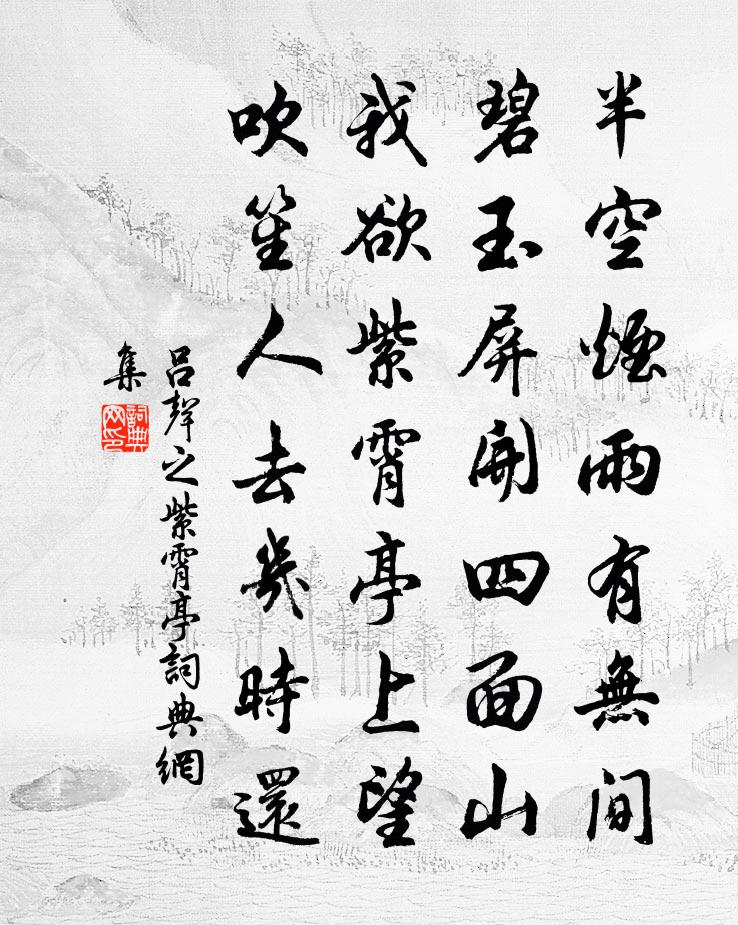 半空煙雨有無間
碧玉屏開四面山
我欲紫霄亭上望
吹笙人去幾時還
呂聲之紫霄亭詞典網
集
詞典
网印